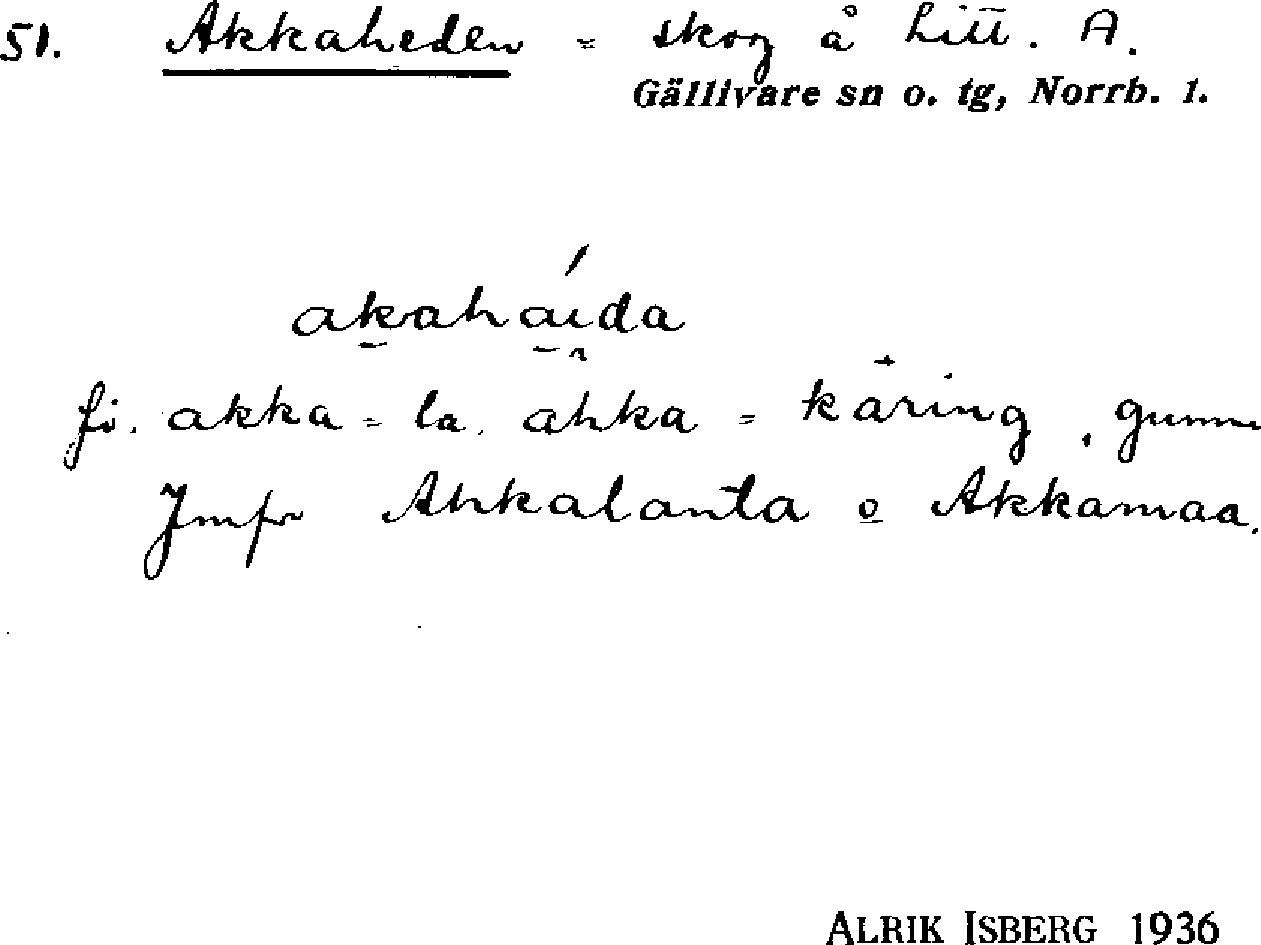 51. Akkaheden = skog å Litt. A.
Gällivare sn o. tg, Norrb. l.
akahaida
fi. akka = la. ahka = käring, gumma
Jmfr Ahkalanta o Akkamaa.
ALRIK ISBERG 1936